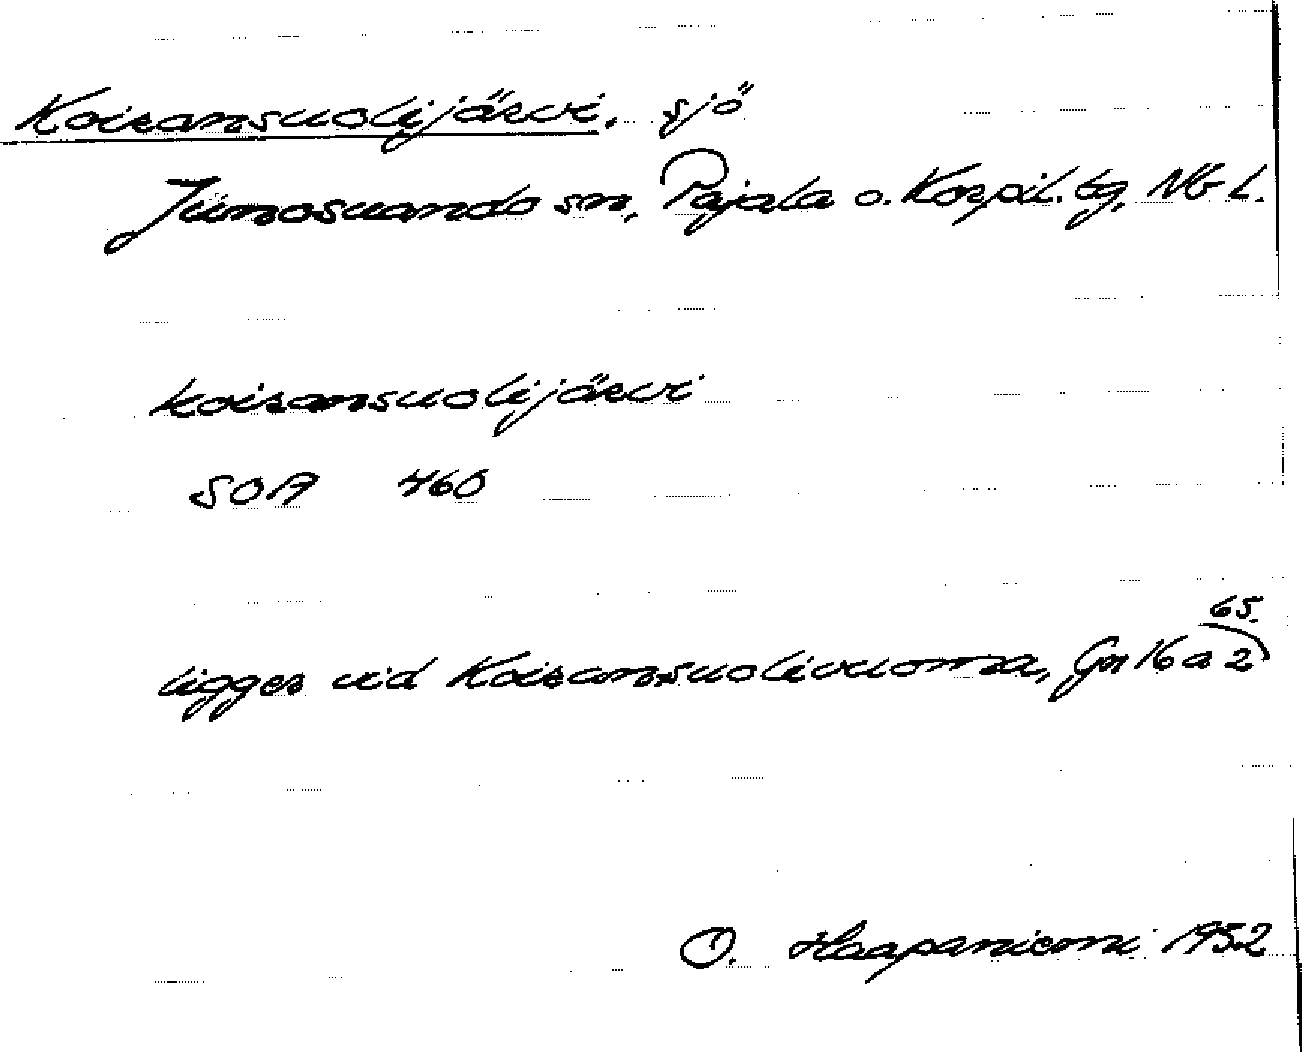 Koiransuolijärvi, sjö
Junosuando sn, Pajala o. Korpil. tg, Nb L.
koiransuolijärvi
SOA 460
65.
ligger vid Koiransuolivuoma, Gn 16 a 2
O. Haapaniemi 1952